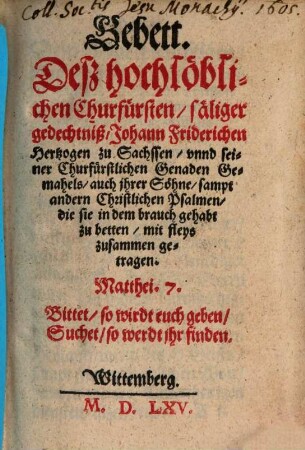 Coll. Soctis Jesu Monachij. 1605.
Gebett.
Deß hochlöbli-
chen Churfürsten / säliger
gedechtniß / Johann Friderichen
Hertzogen zu Sachssen / vnnd sei-
ner Churfürstlichen Genaden Ge-
mahels / auch jhrer Söhne / sampt
andern Christlichen Psalmen /
die sie in dem brauch gehabt
zu betten / mit fleys
zusammen ge-
tragen.
Matthei. 7.
Bittet / so wirdt euch geben /
Suchet / so werdt jhr finden.
Wittemberg.
M. D. LXV.